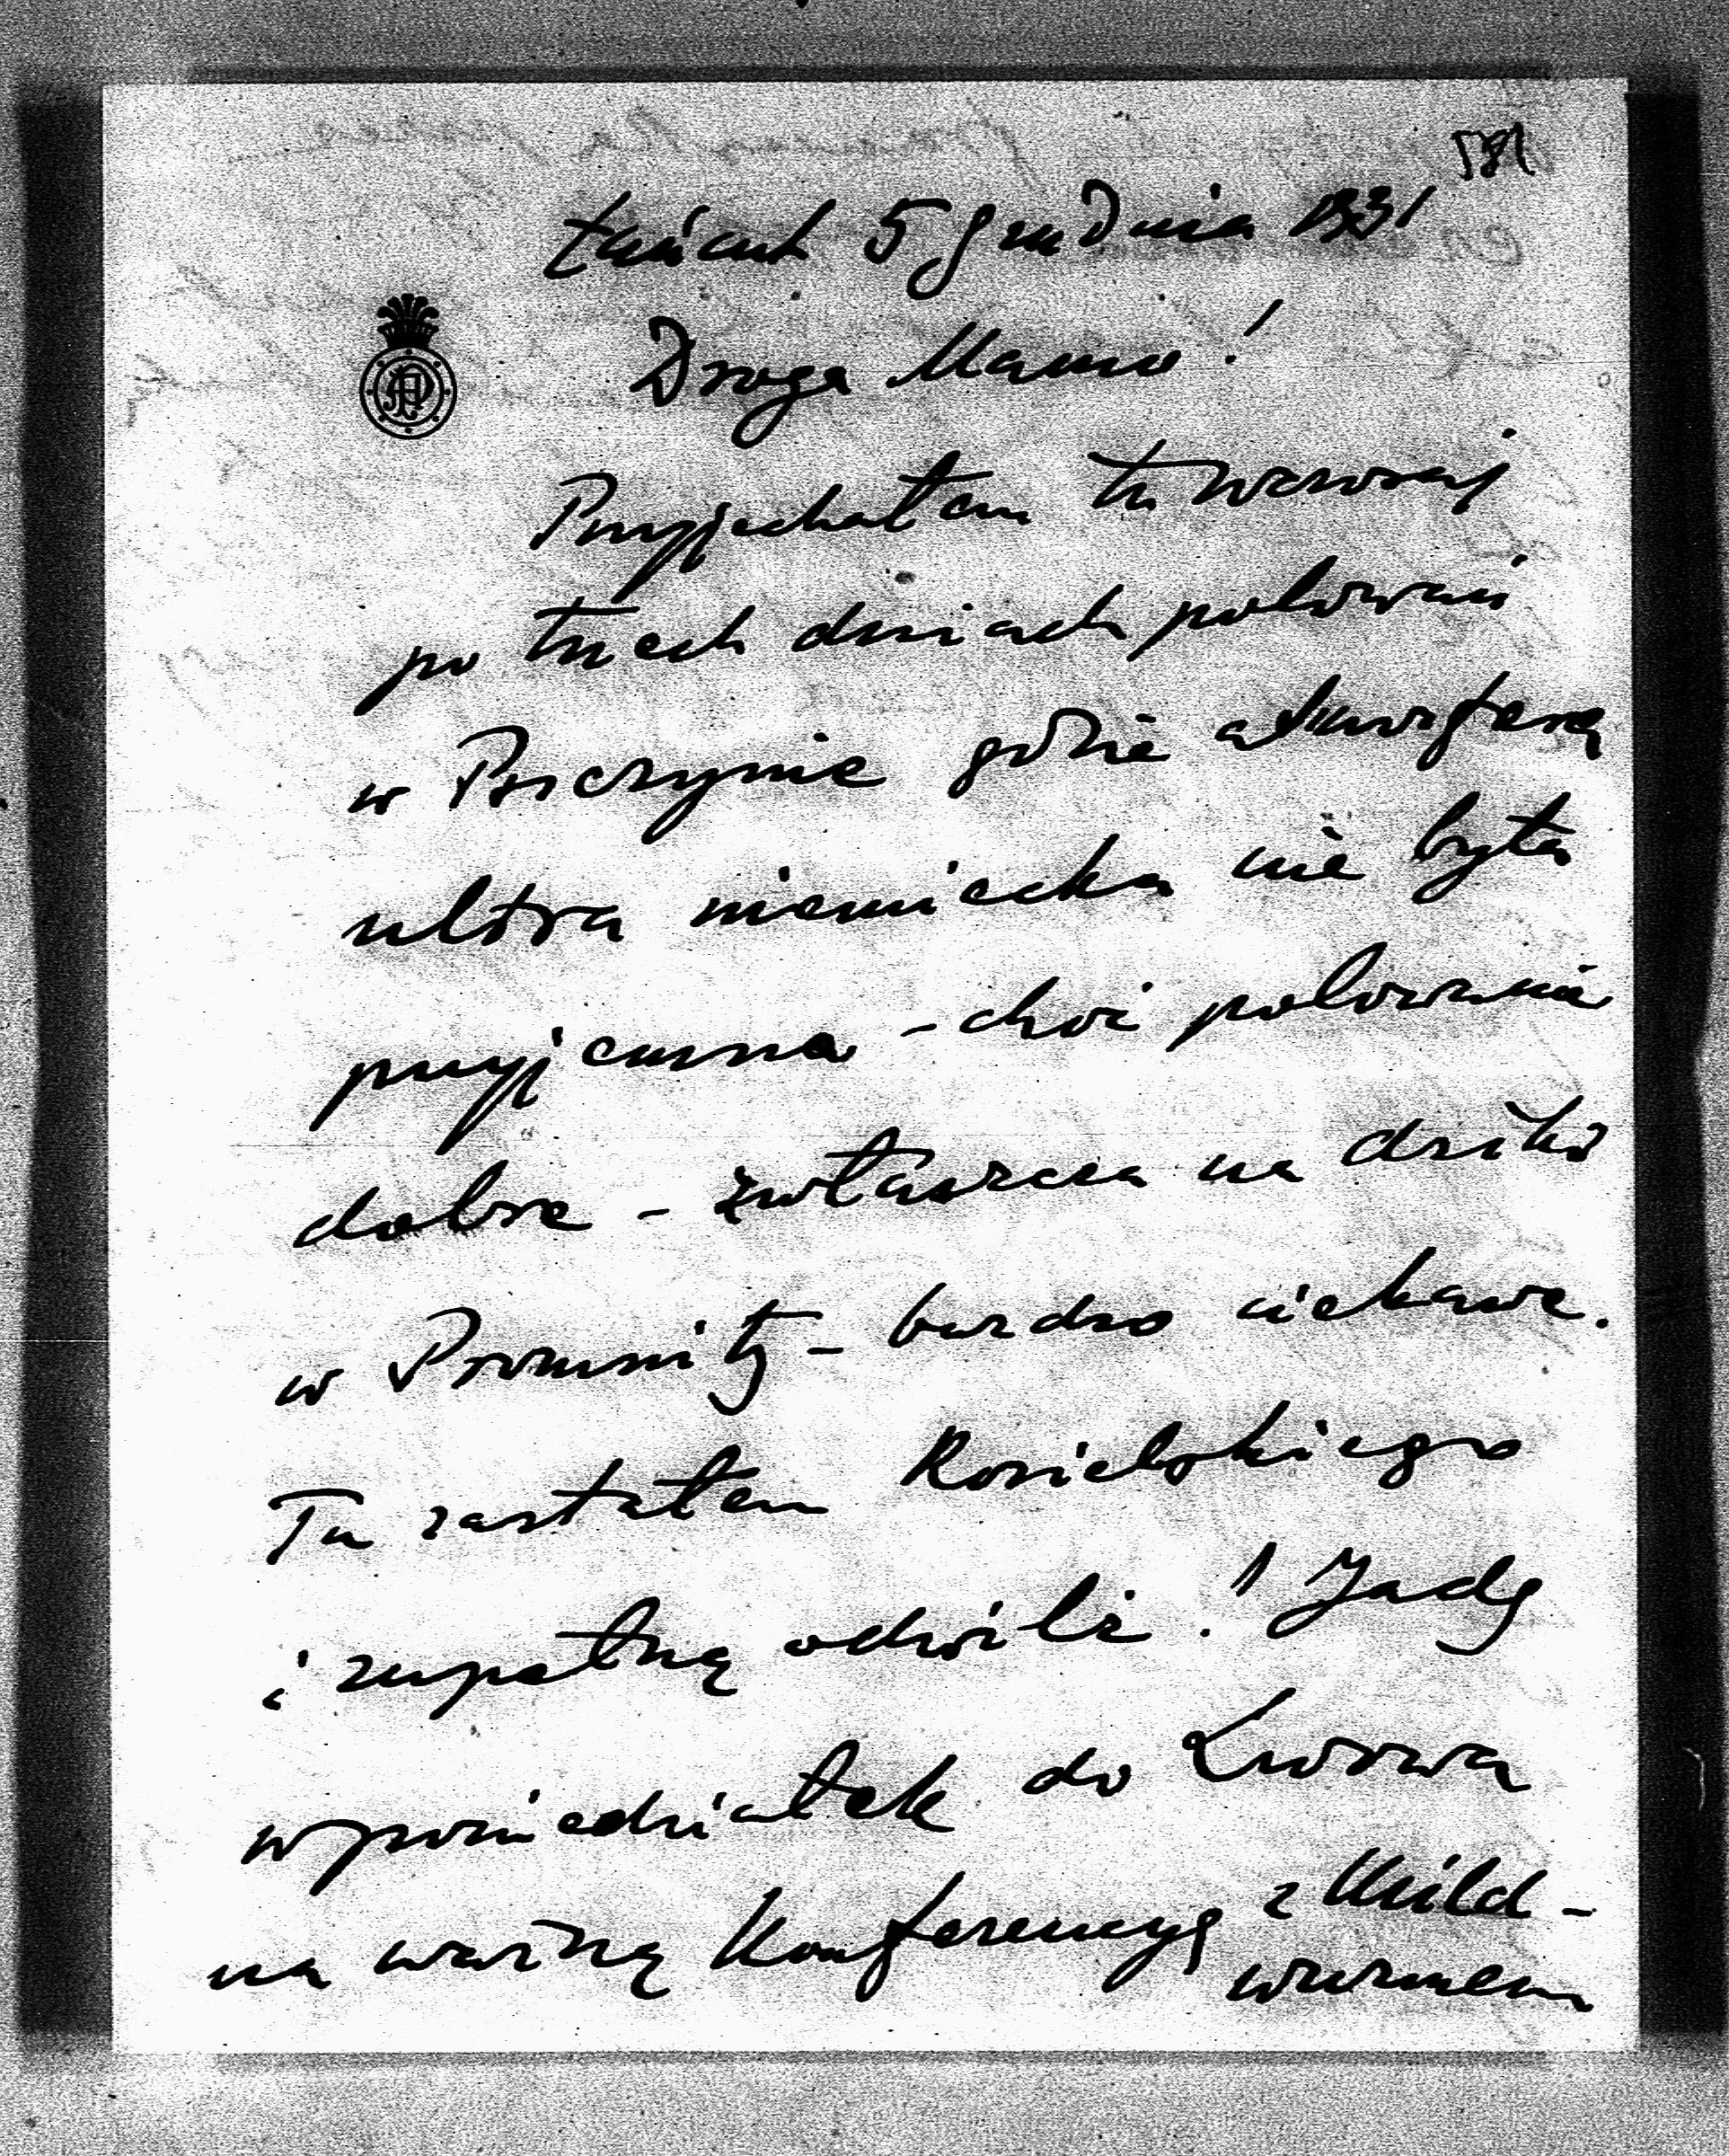 581
Łańcut 5 grudnia 1931
Droga Mamo!
Przyjechałem tu wczoraj
po trzech dniach polowań
w Pszczynie gdzie atmosfera
ultra niemiecka nie była
przyjemna - choć polowanie
dobre - zwłaszcza na dziki
w Promnitz - bardzo ciekawe.
Tu zastałem Kosielskiego
i zupełną odwilż! Jadę
w poniedziałek do Lwowa
na ważną Konferencyę z Wild-
wurmem